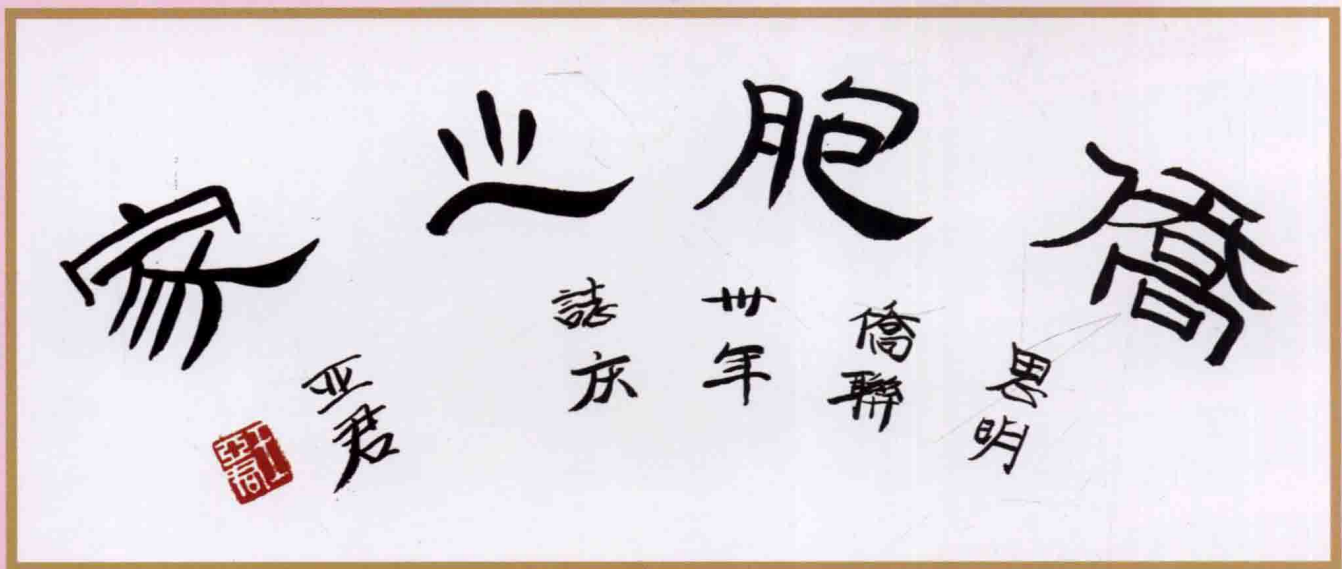 僑胞之家
思明
僑聯
卅年
誌庆
亚君
王亞君